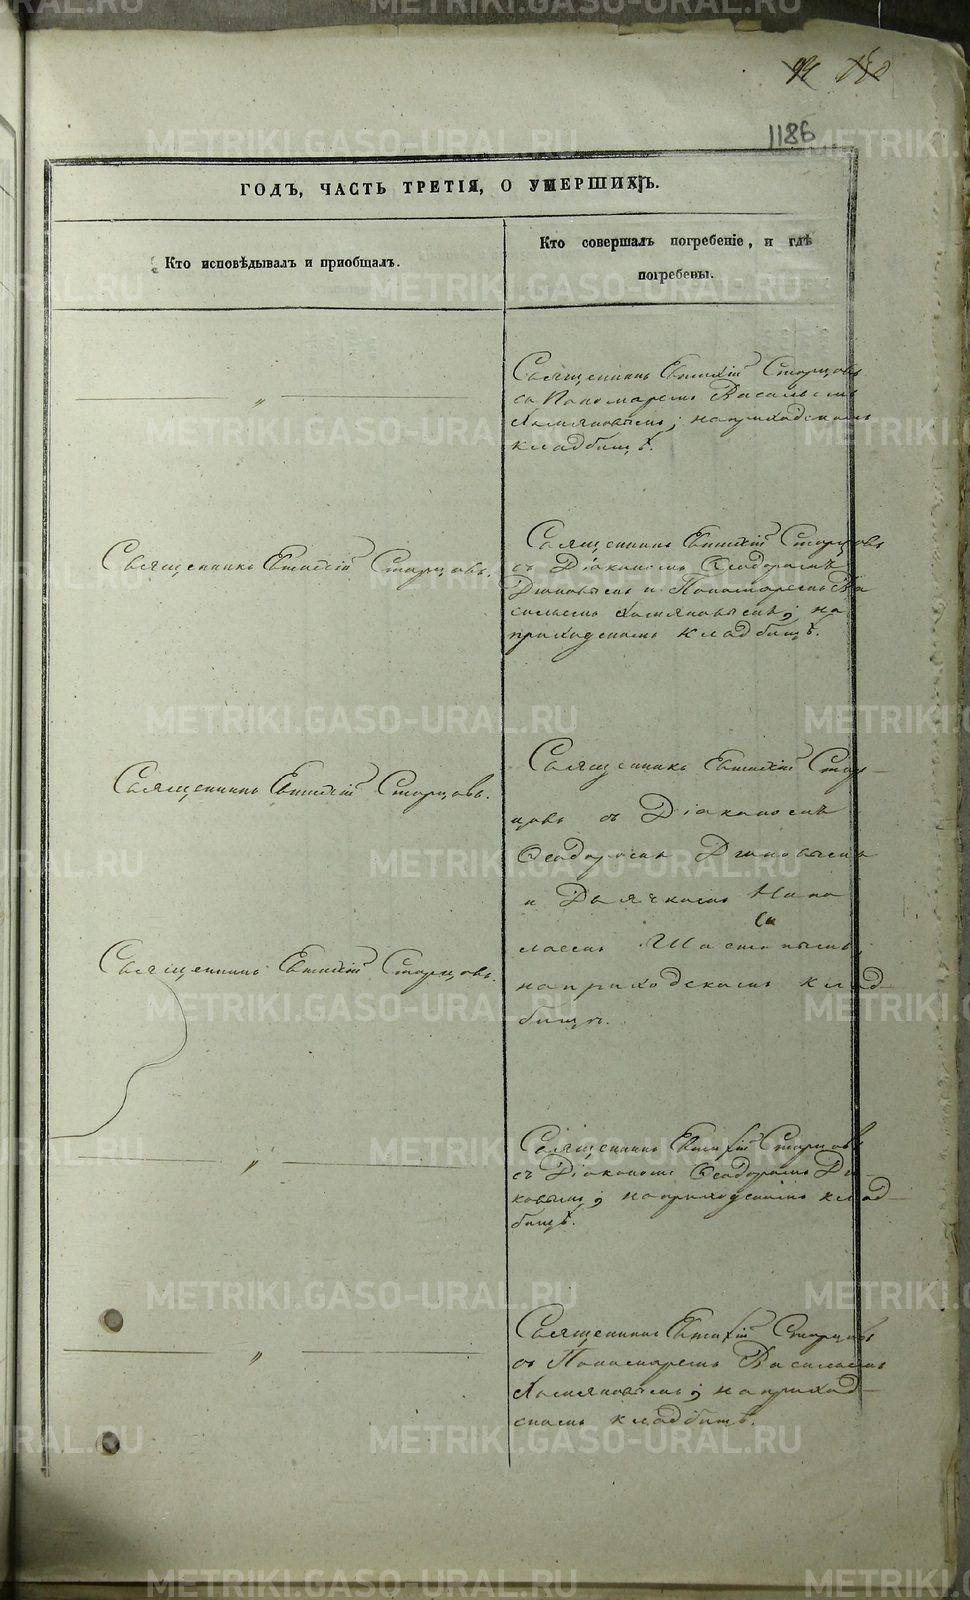 1186
ГОДЪ, ЧАСТЬ ТРЕТІЯ, О УМЕРШИХЪ.
Кто исповѣдывалъ и пріобщалъ.
Кто совершалъ погребеніе, и гдѣ
погребены.
Священникъ Евтихій Старцовъ
съ Пономаремъ Василіемъ
Хомяковымъ; на приходскомъ
кладбищѣ.
Священникъ Евтихій Старцовъ.
Священникъ Евтихій Старцовъ
съ Діакономъ Ѳеодоромъ
и Пономаремъ Ва
силіемъ Хомяковымъ; на
приходскомъ кладбищѣ.
Священникъ Евтихій Старцовъ.
Священникъ Евтихій Стар-
цовъ съ Діакономъ
Ѳеодоромъ
и Дьячкомъ Нико
лаемъ
на приходскомъ клад-
бищѣ.
Священникъ Евтихій Старцовъ.
Священникъ Евтихій Старцовъ
съ Діакономъ Ѳеодоромъ
на приходскомъ клад-
бищѣ.
Священникъ Евтихій Старцовъ
съ Пономаремъ Василіемъ
Хомяковымъ; на приход-
скомъ кладбищѣ.
METRIKI.GASO-URAL.RU